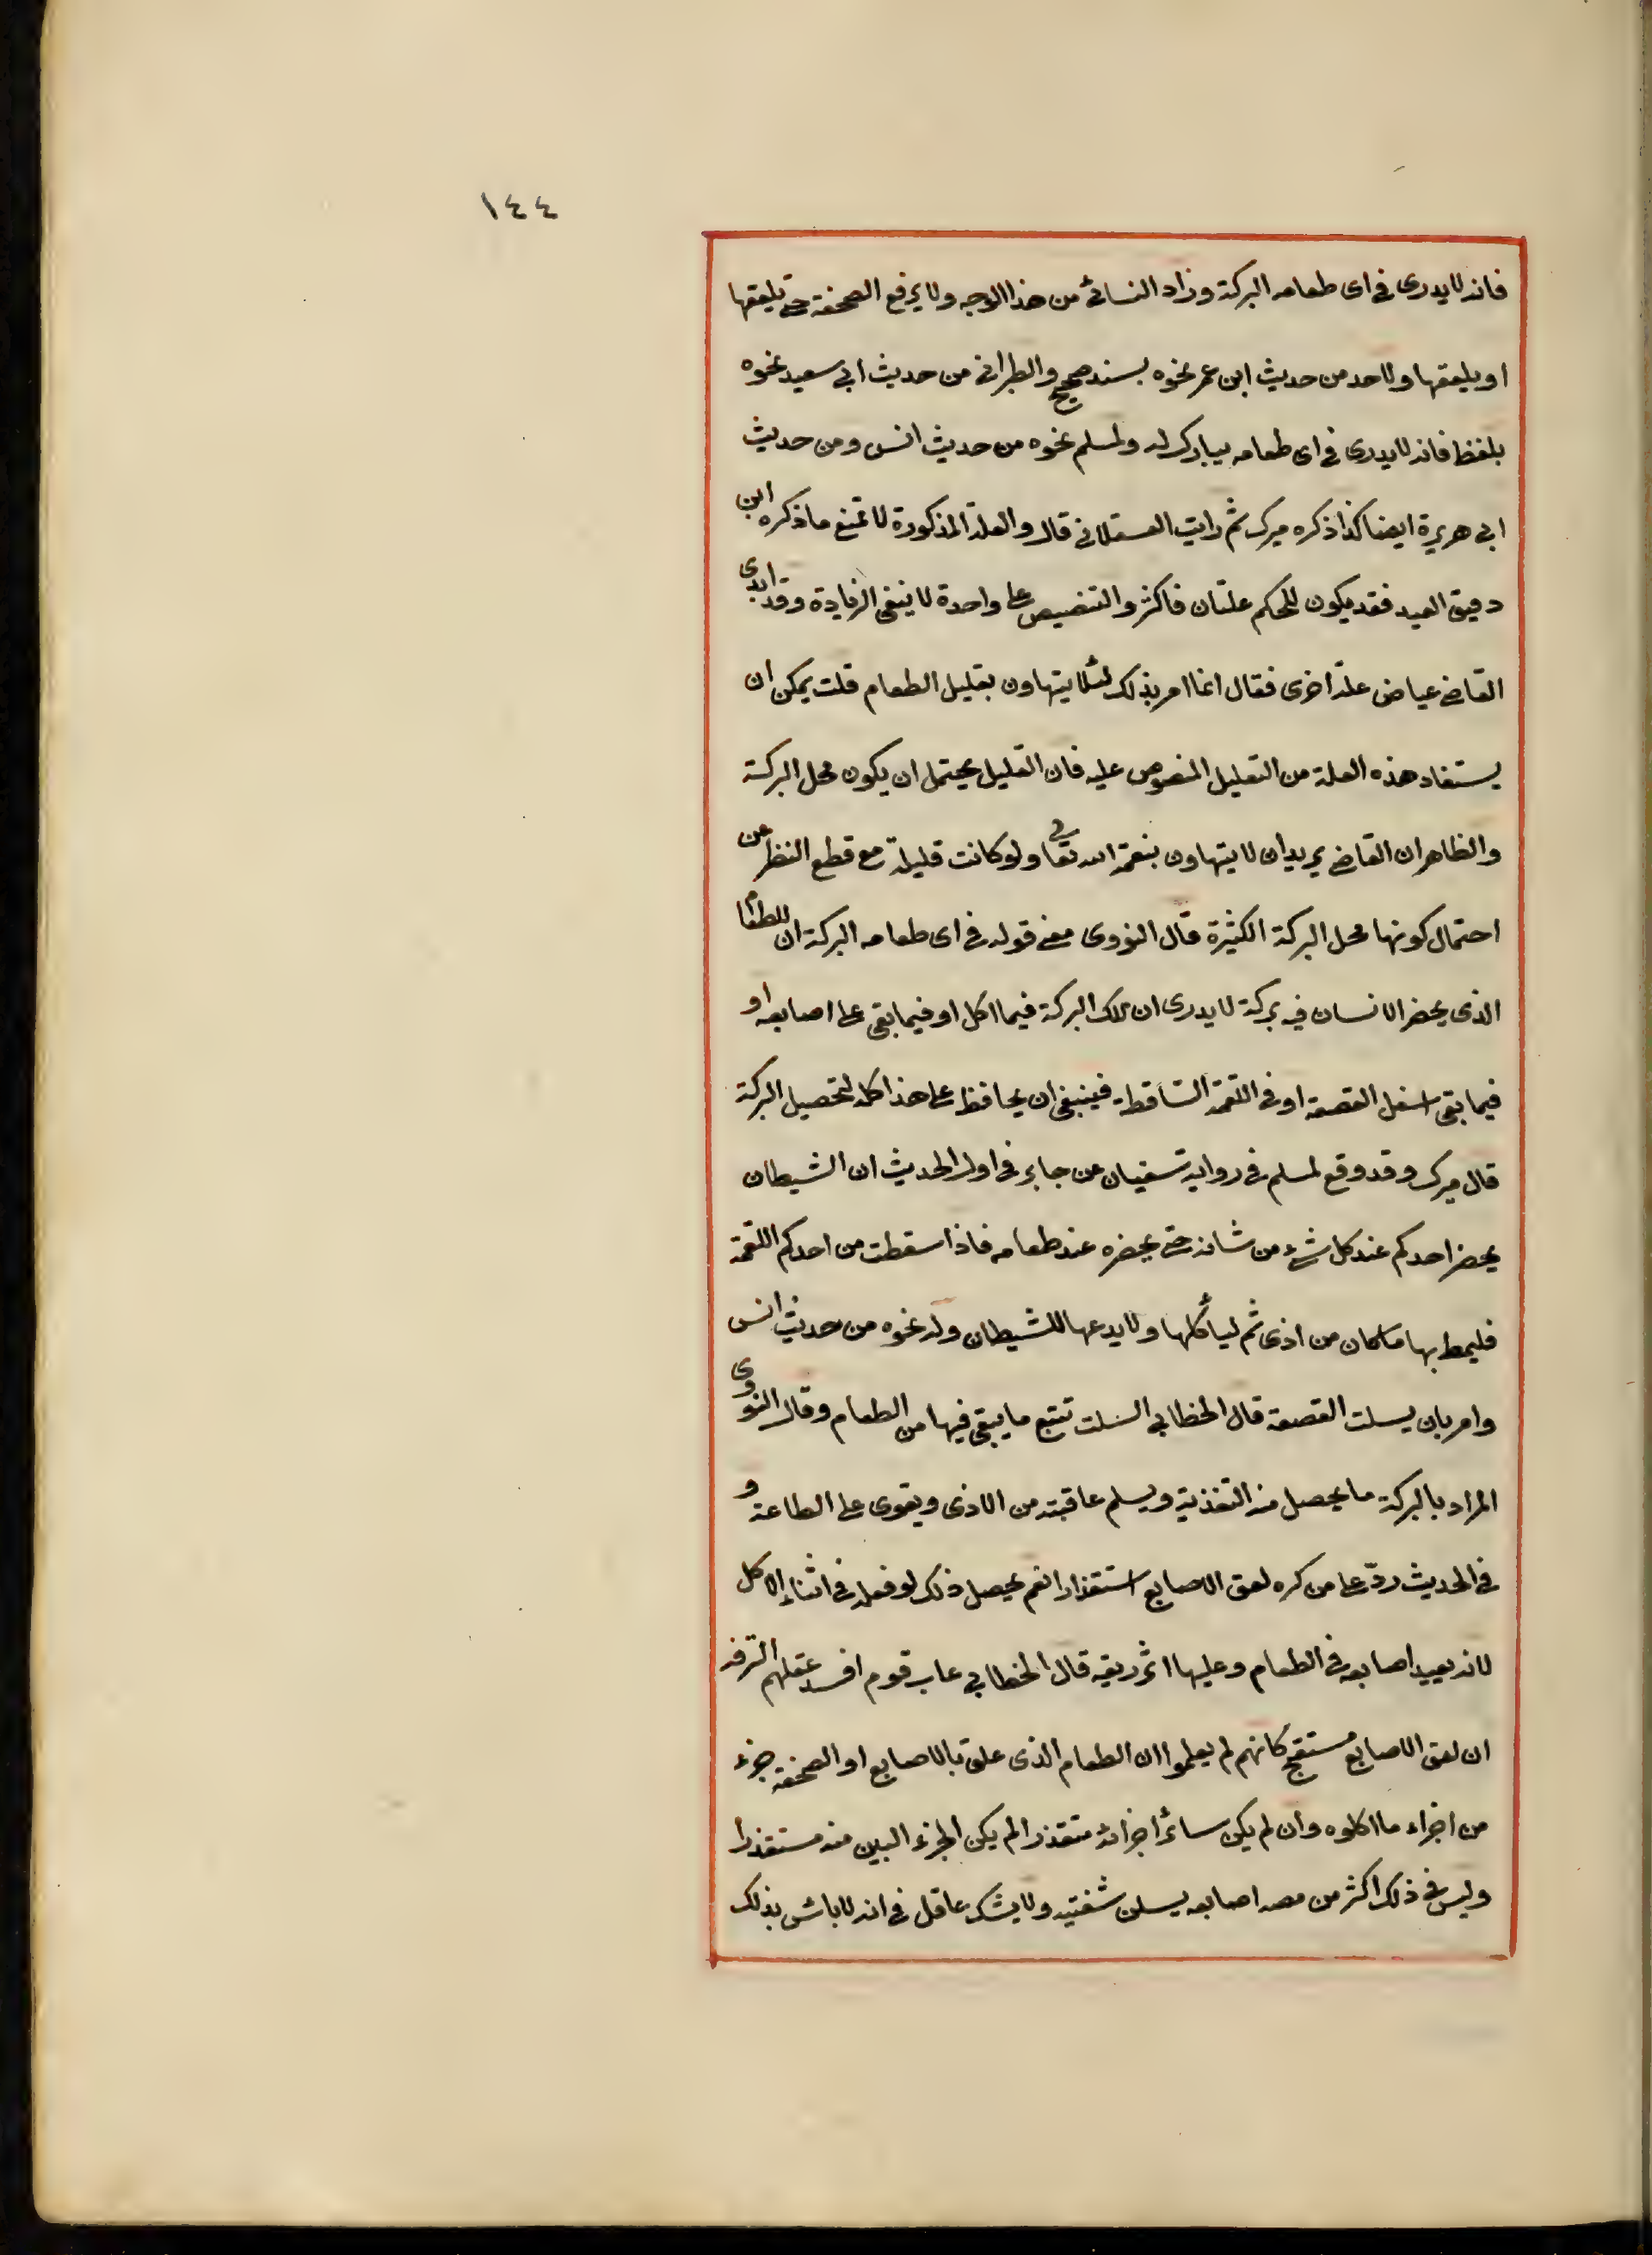 ١٤٤
فانه لا يدرى فى اى طعامه البركة وزاد النسائى من هذا الوجه ولا يرفع الصحفة حتى يلعقها
او يلعقها ولاحمد من حديث ابن عمر نحوه بسند صحيح والطبرانى من حديث ابى سعيد نحوه
بلفظ فانه لا يدرى فى اى طعامه يبارك له ولمسلم نحوه من حديث انس ومن حديث
ابى هريرة ايضا كذا ذكره ميرك ثم رايت العسقلانى قال والعلة المذكورة لا تمنع ما ذكره ابن
دقيق العيد فقد يكون للحكم علتان فاكثر والتنصيص على واحدة لا ينفى الزيادة وقد ابدى
القاضى عياض علة اخرى فقال انما امر بذلك لئلا يتهاون بقليل الطعام قلت يمكن ان
يستفاد هذه العلة من التعليل المنصوص عليه فان القليل يحتمل ان يكون محل البركة
والظاهر ان القاضى يريد ان لا يتهاون بنعمة الله تعالى ولو كانت قليلة مع قطع النظر عن
احتمال كونها محل البركة الكثيرة قال النووى معنى قوله فى اى طعامه البركة ان الطعام
الذى يحضر الانسان فيه بركة لا يدرى ان تلك البركة فيما اكل او فيما بقى على اصابعه او
فيما بقى اسفل القصعة او فى اللقمة الساقطة فينبغى ان يحافظ على هذا كله لتحصيل البركة
قال ميرك وقد وقع لمسلم فى رواية سفيان عن جابر فى اول الحديث ان الشيطان
يحضر احدكم عند كل شىء من شانه حتى يحضره عند طعامه فاذا سقطت من احدكم اللقمة
فليمط بها ما كان من اذى ثم ليأكلها ولا يدعها للشيطان وله نحوه من حديث انس
وامر بان يسلت القصعة قال الخطابى السلت تتبع ما يبقى فيها من الطعام وقال النووى
المراد بالبركة ما يحصل منه التغذية ويسلم عاقبته من الاذى ويقوى على الطاعة و
فى الحديث ردّ على من كره لعق الاصابع استقذارا نعم يحصل ذلك لو فعله فى اثناء الاكل
لانه يعيد اصابعه فى الطعام وعليها اثر ريقه قال الخطابى عاب قوم افسد عقلهم الترفه
ان لعق الاصابع مستقبح كانهم لم يعلموا ان الطعام الذى علق بالاصابع او الصحفة جزء
من اجزاء ما اكلوه وان لم يكن سائر اجزائه مستقذرا لم يكن الجزء البين منه مستقذرا
وليس فى ذلك اكثر من مصه اصابعه شفتيه ولا يشك عاقل فى انه لا باس بذلك